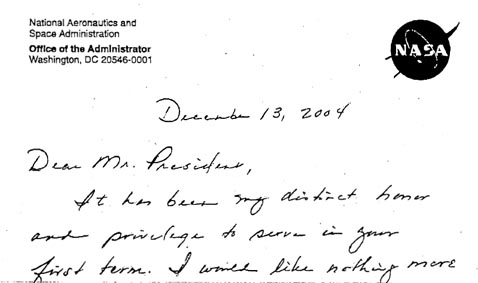 National Aeronautics and
Space Administration
Office of the Administrator
Washington, DC 20546-0001
NASA
December 13, 2004
Dear Mr. President,
It has been my distinct honor
and privilege to serve in your
first term. I would like nothing more